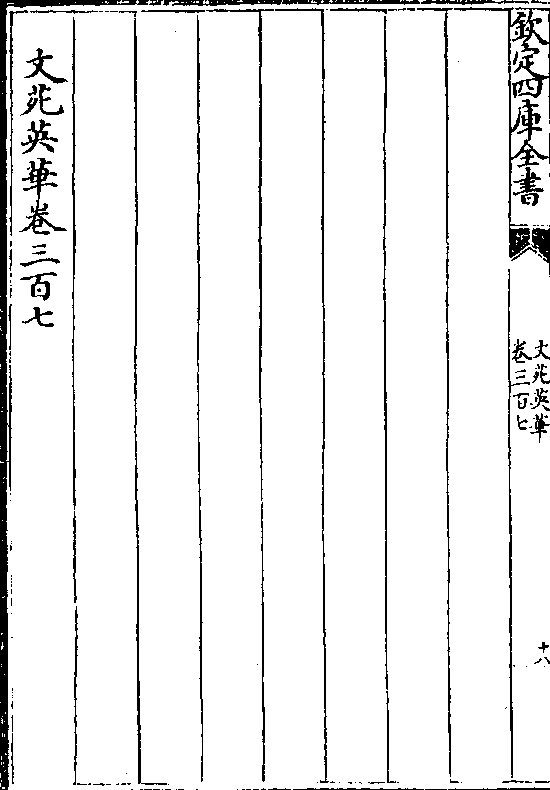 欽定四庫全書
文苑英華
卷三百七
十八
文苑英華卷三百七